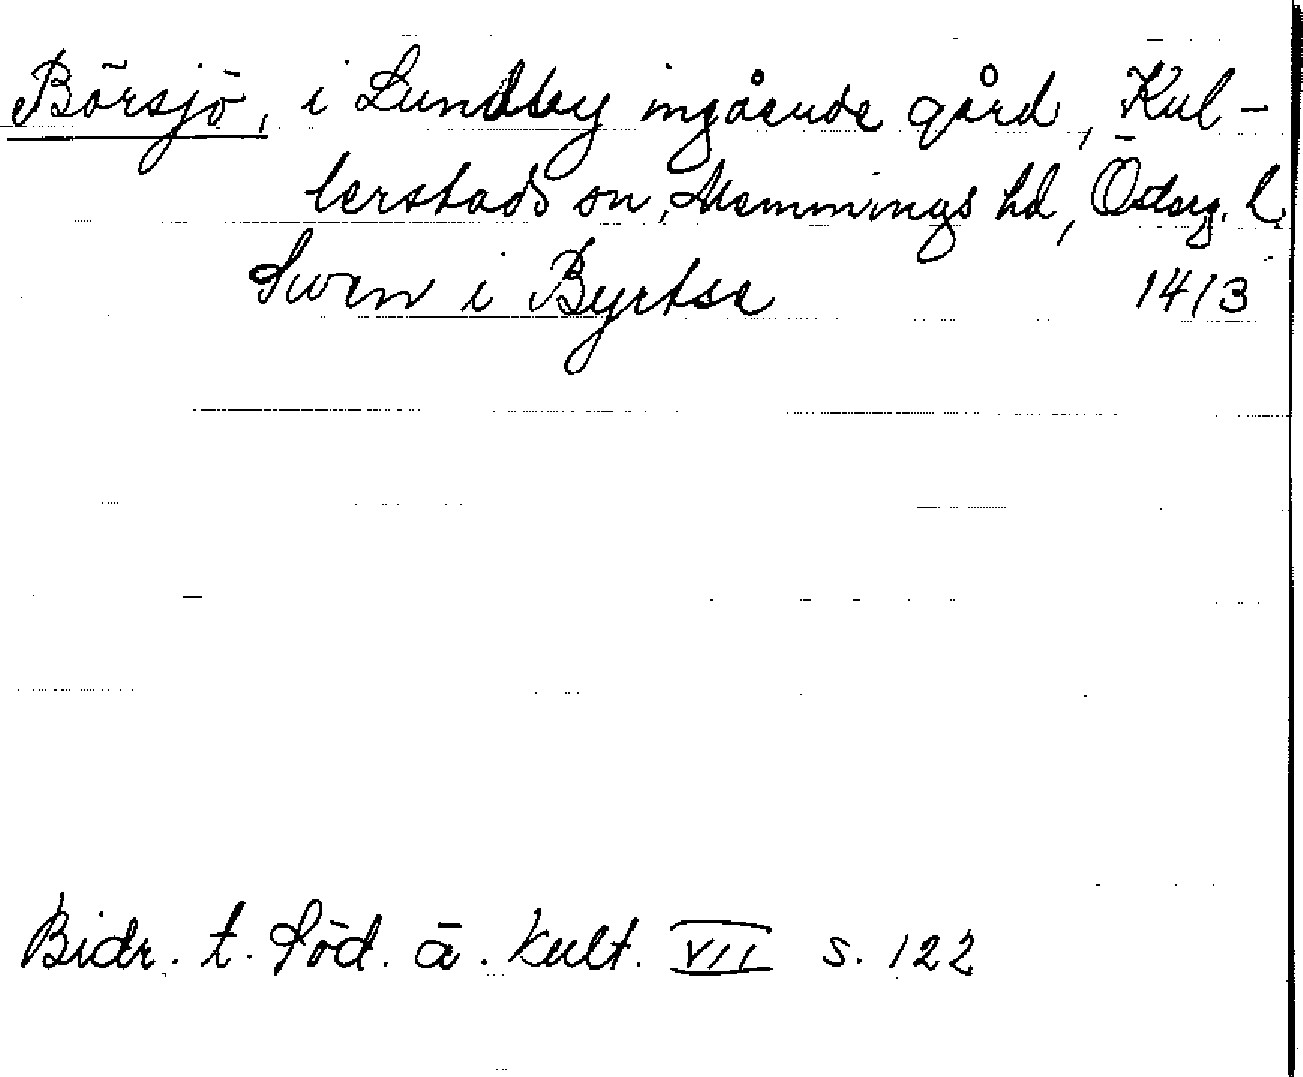 Börsjö, i Lundby ingående gård, Kul-
lerstads sn, Memmings hd, Östrg. l.
Swen i Byrtse 1413
Bidr. t. Söd. ä. kult. VII s. 122